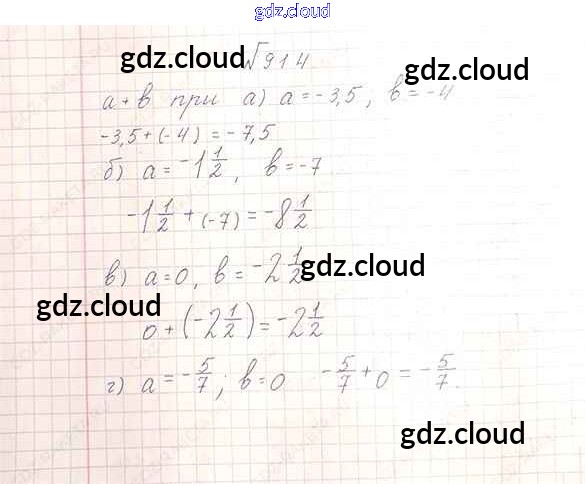 gdz.cloud
gdz.cloud √914
a + b при а) a = -3,5 ; b = -4 gdz.cloud
-3,5 + (-4) = -7,5
б) a = -1 1/2, b = -7
-1 1/2 + (-7) = -8 1/2
в) a = 0, b = -2 1/2 gdz.cloud
gdz.cloud
0 + (-2 1/2) = -2 1/2
г) a = -5/7; b = 0 -5/7 + 0 = -5/7.
gdz.cloud